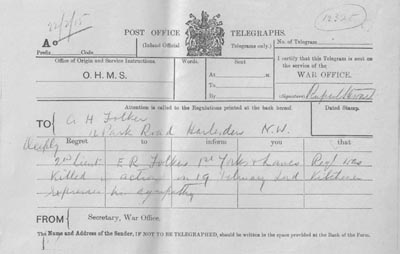 22/2/15
12325
POST OFFICE TELEGRAPHS.
A
(Inland Official Telegrams only.)
No. of Telegram
Prefix Code
Office of Origin and Service Instructions.
Words.
Sent
I certify that this Telegram is sent on the service of the
O.H.M.S.
At m
WAR OFFICE.
To
By
Signature
Attention is called to the Regulations printed at the back hereof.
Dated Stamp.
TO A H
12 Park Road Harlesden N.W.
Deeply Regret to inform you that
2nd Lieut E R 1st Yorks & Lancs Regt was
killed in action on 19 February Lord Kitchener
expresses his sympathy
FROM Secretary, War Office.
The Name and Address of the Sender, IF NOT TO BE TELEGRAPHED, should be written in the space provided at the Back of the Form.